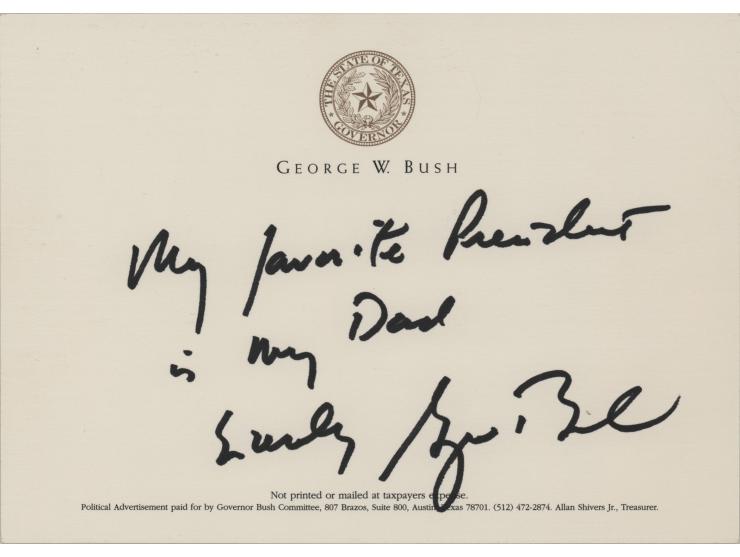 THE STATE OF TEXAS
GOVERNOR
GEORGE W. BUSH
My favorite President
is my Dad
Sincerely George Bush
Not printed or mailed at taxpayers expense.
Political Advertisement paid for by Governor Bush Committee, 807 Brazos, Suite 800, Austin, Texas 78701. (512) 472-2874. Allan Shivers Jr., Treasurer.